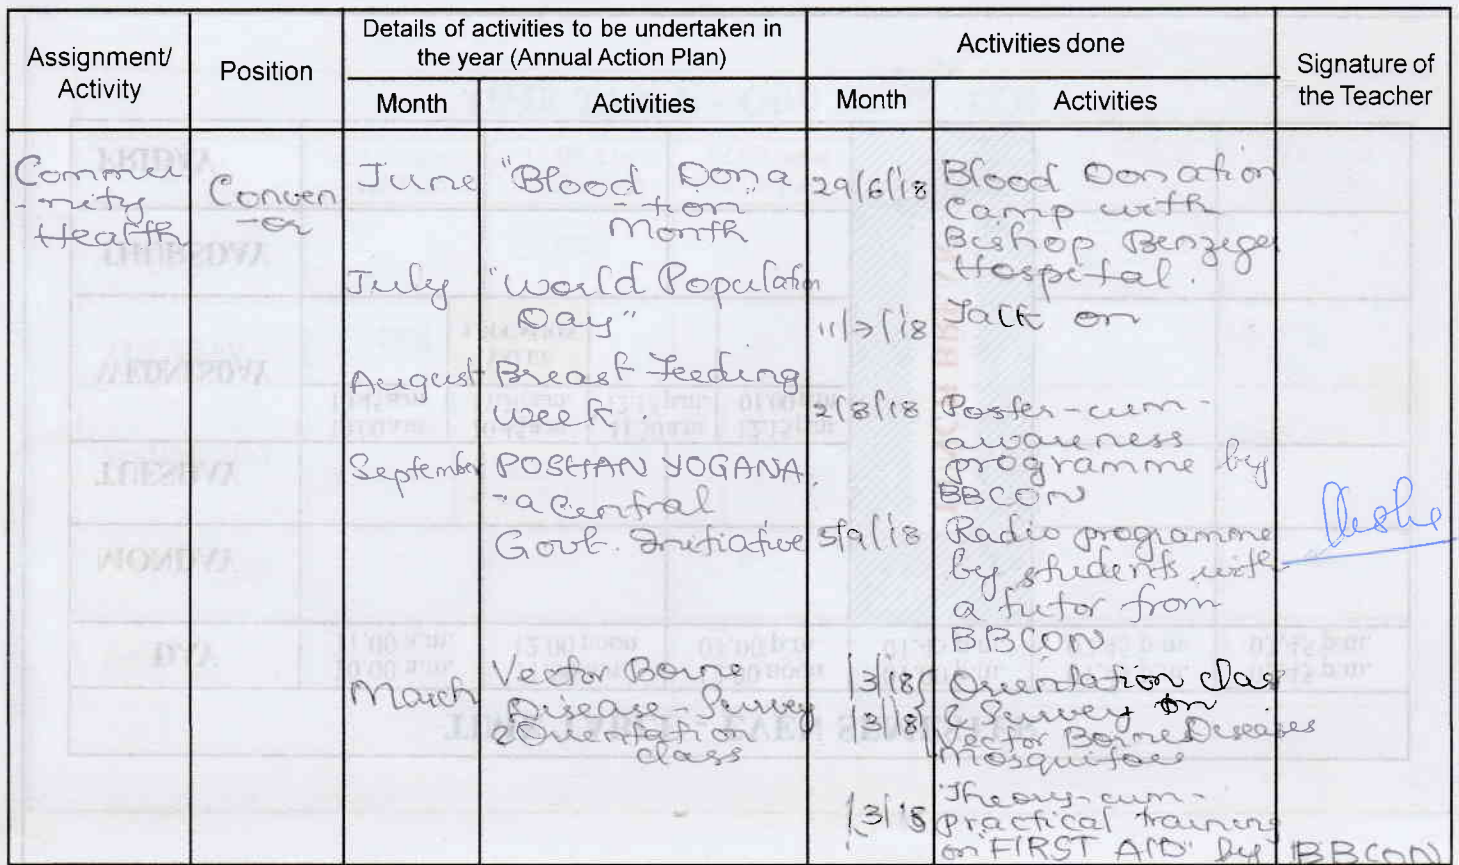 Assignment/ Activity
Position
Details of activities to be undertaken in
the year (Annual Action Plan)
Activities done
Signature of
the Teacher
Month
Activities
Month
Activities
Commu
-nity
Health
Conven
-or
June
"Blood Dona
-tion"
Month
29/6/18
Blood Donation
Camp with
Bishop Benziger
Hospital.
July
"World Population
Day"
11/7/18
Talk on
August
Breast Feeding
week.
2/8/18
Poster-cum-
awareness
programme by
BBCON
September
POSHAN YOGANA.
-a Central
Govt. Initiative
5/9/18
Radio programme
by students with
a tutor from
BBCON
March
Vector Borne
Disease - Survey
& Orientation
class
/3/18
/3/18
Orientation clas
& Survey on
Vector Borne Diseases
/3/18
Theory-cum-
practical training
on "FIRST AID" by BBCON